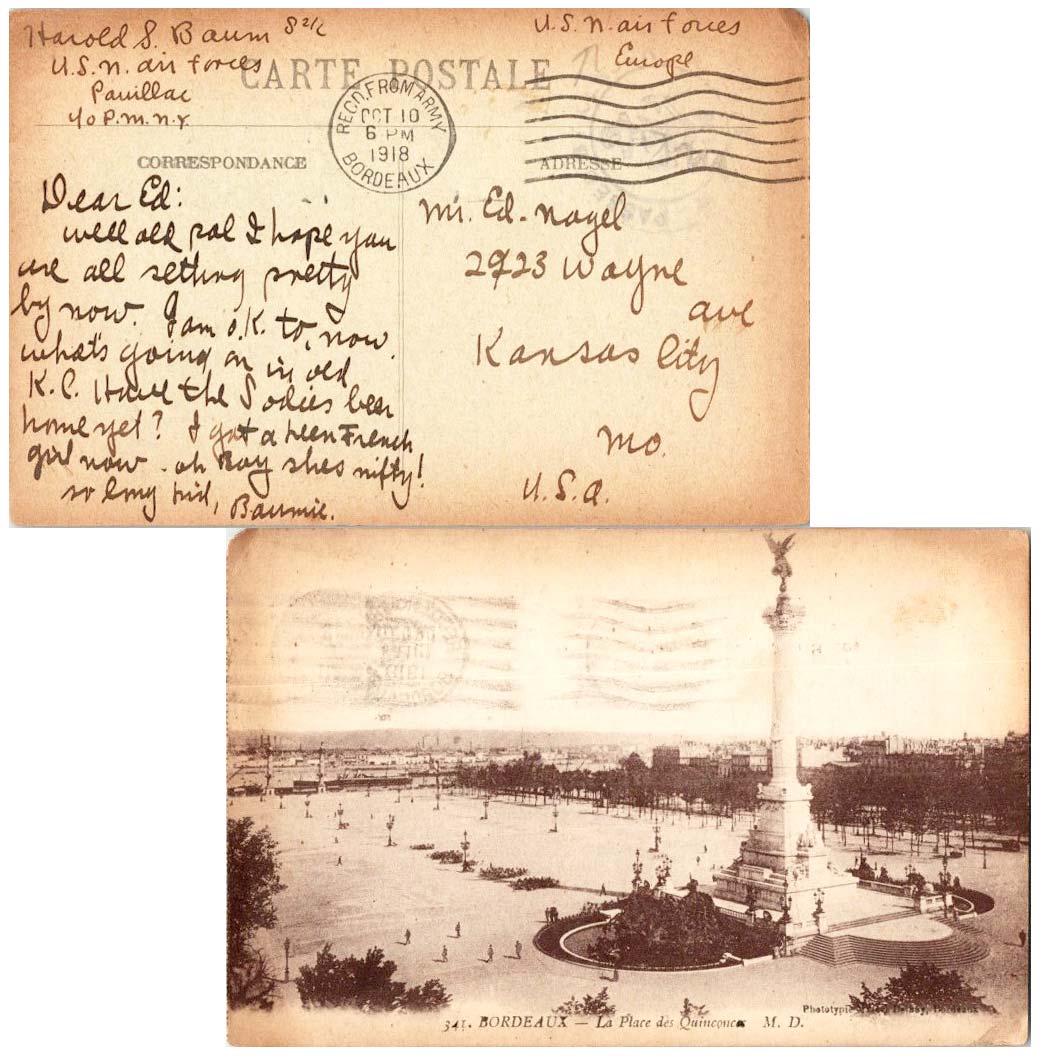 Harold S. Baum S2/c
U.S.N. air forces
Pauillac
c/o P.M.N.Y
U.S.N. air forces
Europe
CARTE POSTALE
REC'D. FROM ARMY
OCT 10
6 PM
1918
BORDEAUX
CORRESPONDANCE
ADRESSE
Dear Ed:
well old pal I hope you
are all setting pretty
by now. I am O.K. to, now.
what's going on in old
K.C. Have the Sodies been
home yet? I got a French
girl now - oh Boy shes nifty!
so long kid,
Baumie.
Mr. Ed. Nagel
2923 Wayne
ave
Kansas City
Mo.
U.S.A.
341. BORDEAUX — La Place des Quinconces M. D.
Phototypie Bordeaux